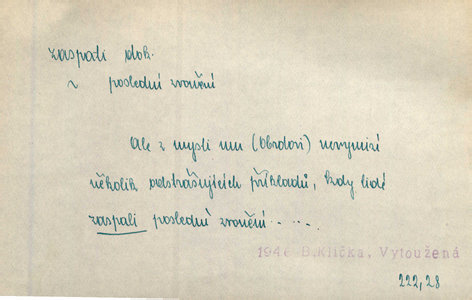 zaspati dok.
~ poslední zvonění
Ale z mysli mu (Obrdovi) nevymizí
několik odstrašujících příkladů, kdy lidé
zaspali poslední zvonění.....
1946 B.Klička, Vytoužená
222,28